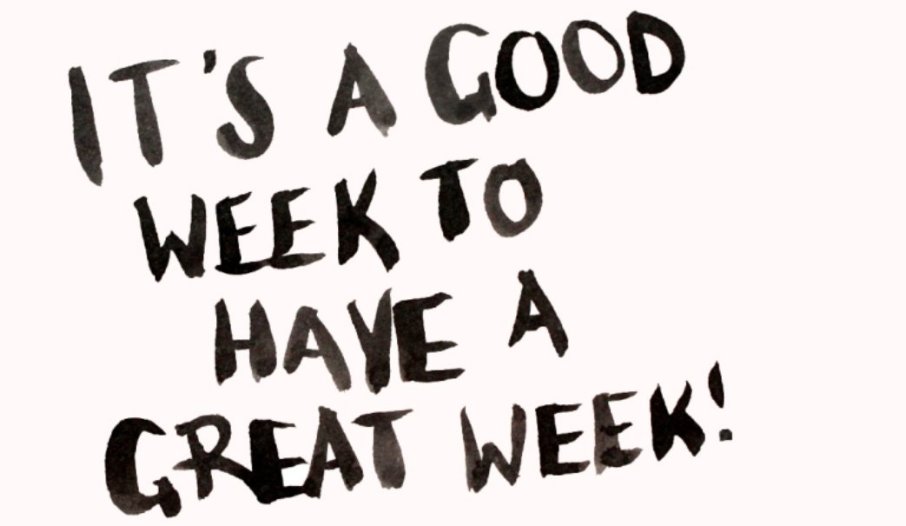 IT'S A GOOD
WEEK TO
HAVE A
GREAT WEEK!